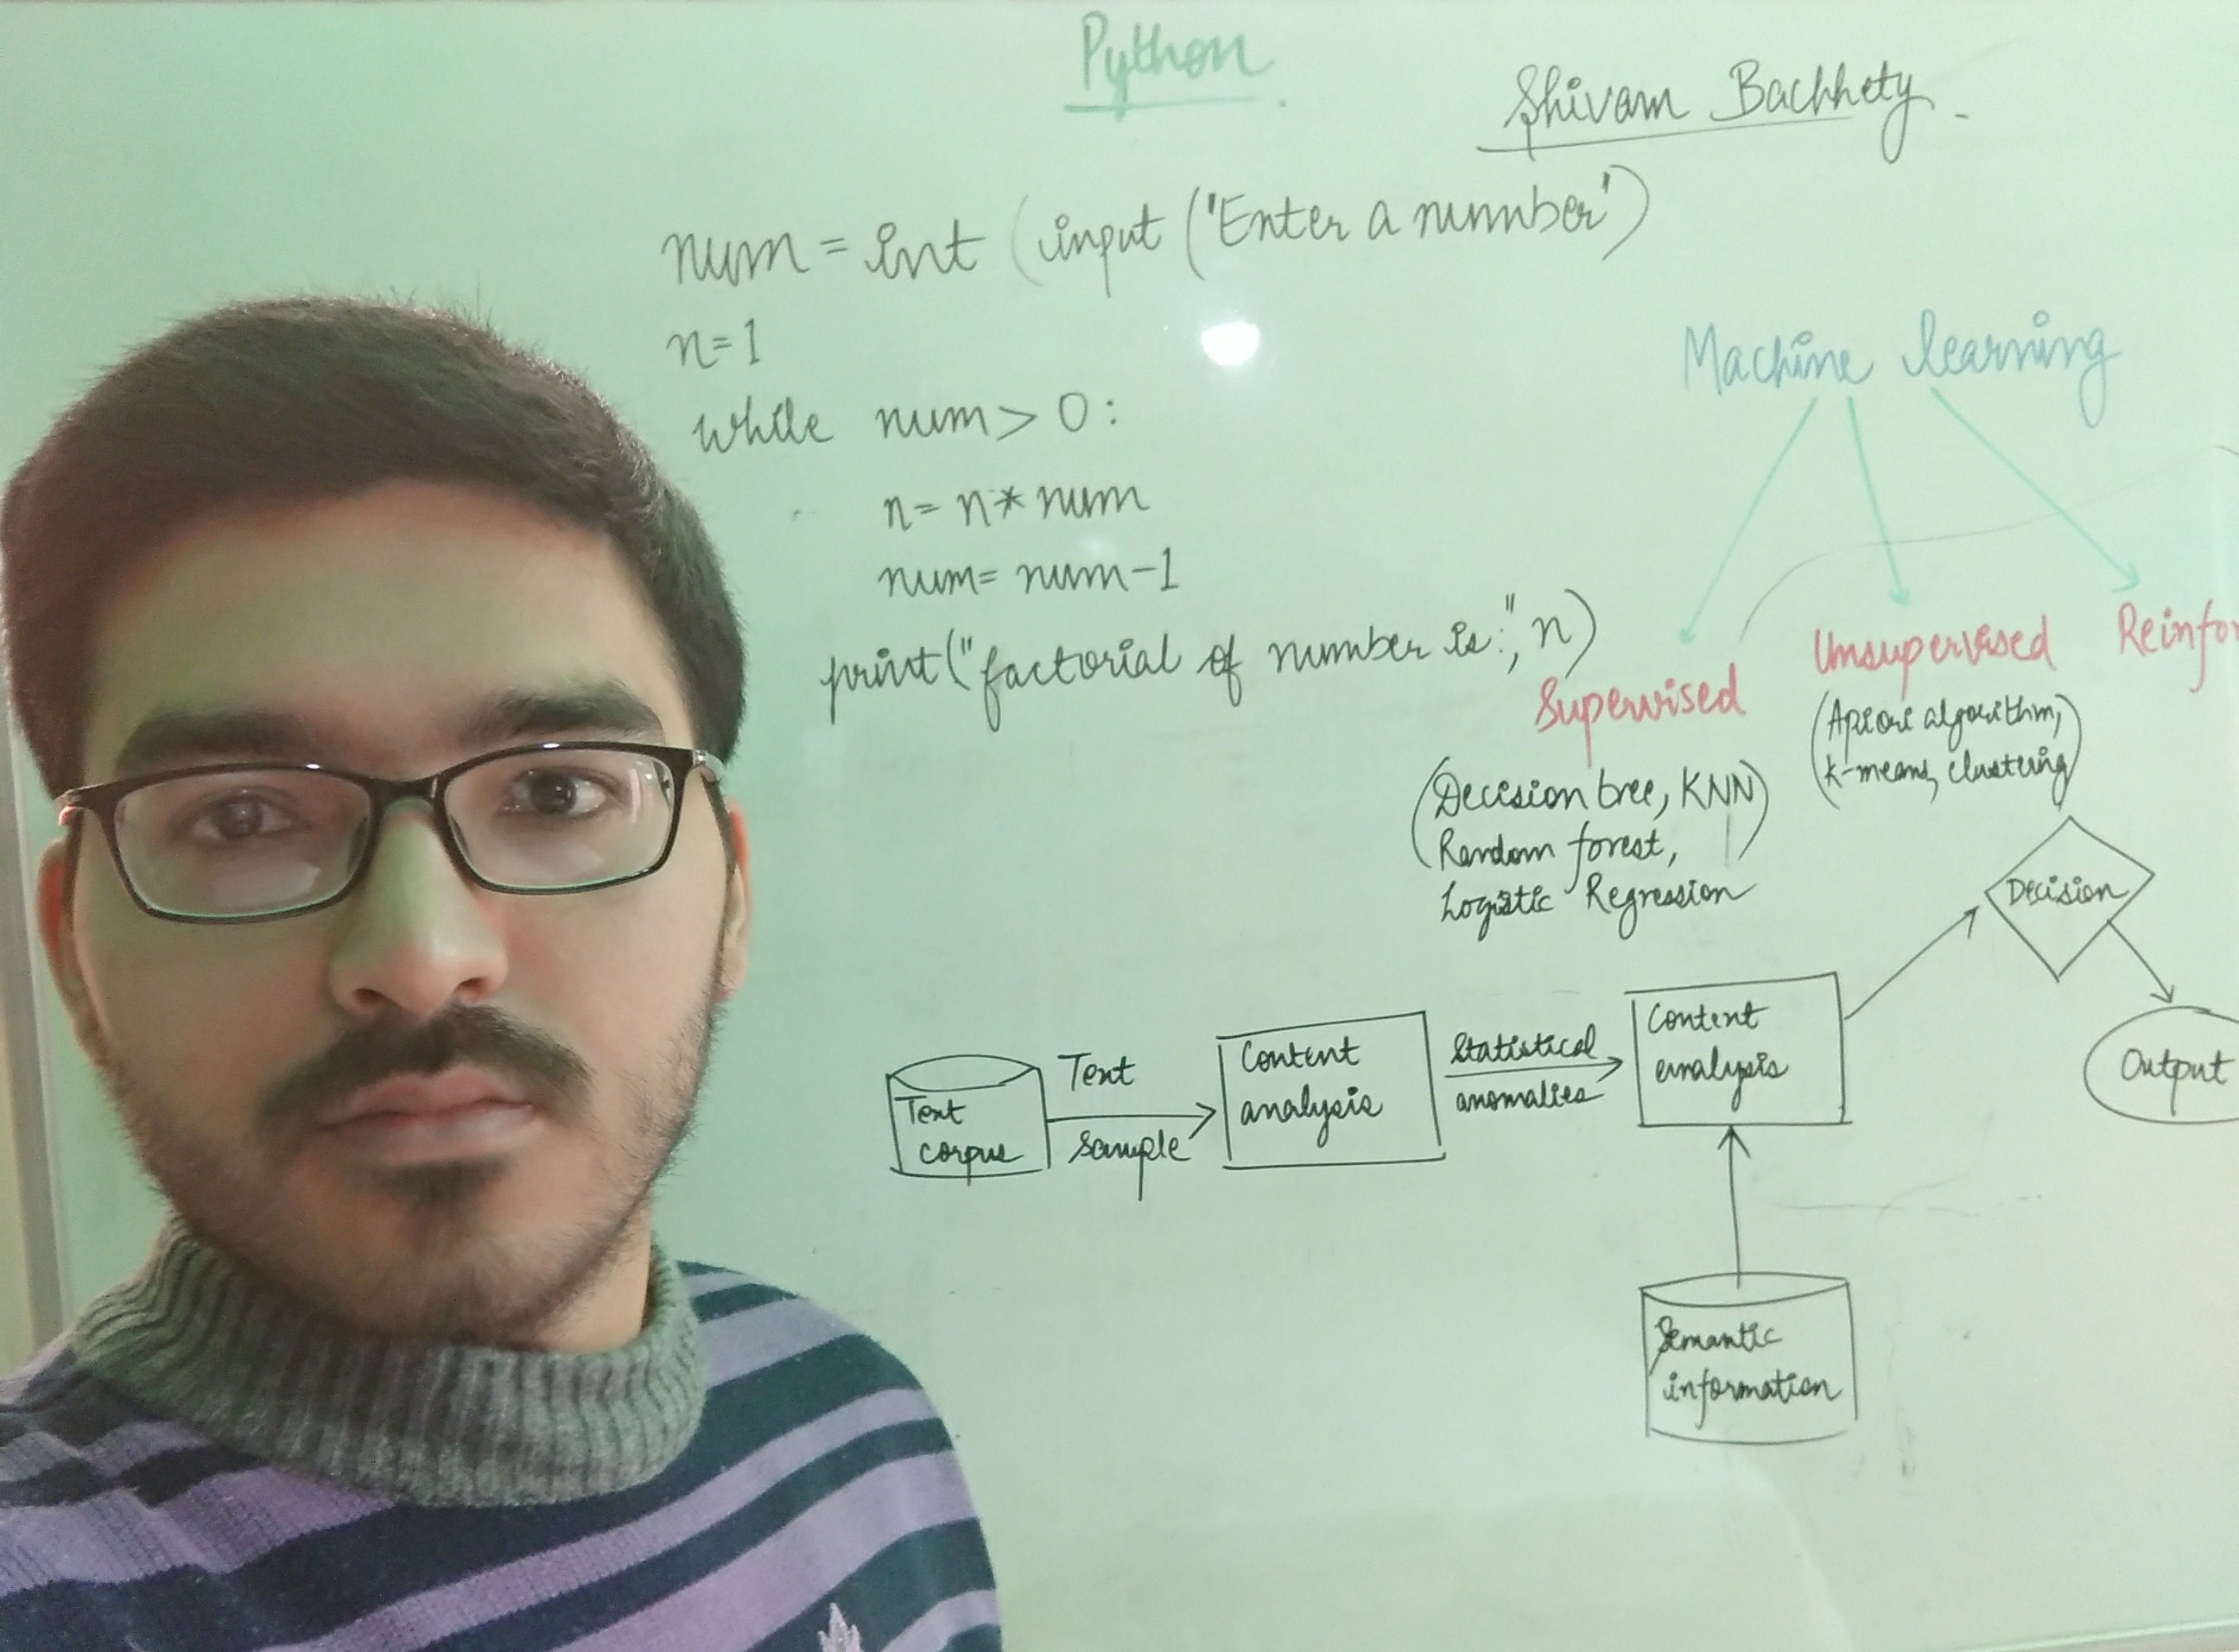 Python
Shivam Bachhety
num = int (input ('Enter a number')
n=1
while num > 0:
n= n* num
num= num-1
print("factorial of number is:", n)
Machine learning
Supervised
(Decision tree, KNN)
Random forest,
Logistic Regression
Unsupervised
(Apiori algorithm,
k-means, clustering)
Reinfor
Text
corpus
Text
sample
Content
analysis
Statistical
anomalies
Content
analysis
Decision
Output
Semantic
information